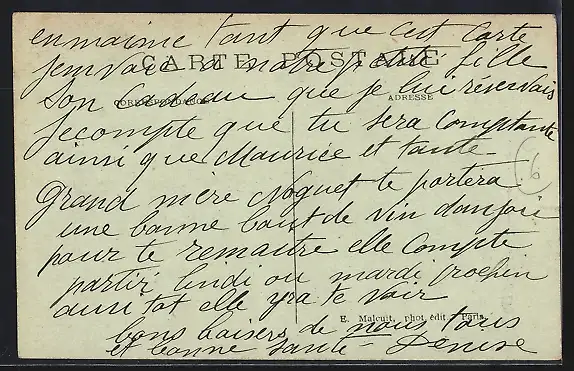 en maime tant que cest carte
CARTE POSTALE
jemvaie a notre petite fille
CORRESPONDANCE
ADRESSE
son Cadeau que je lui réservais
Jecompte que tu sera Comptante
ainsi que Maurice et tante
6
Grand mère Noguet te portera
une banne bout de vin danjou
pour te remaitre elle Compte
partir lundi ou mardi prochin
ausi tat elle yra te voir
E. Malcuit, phot. édit., Paris.
bons baisers de nous tous
et banne santé Denise